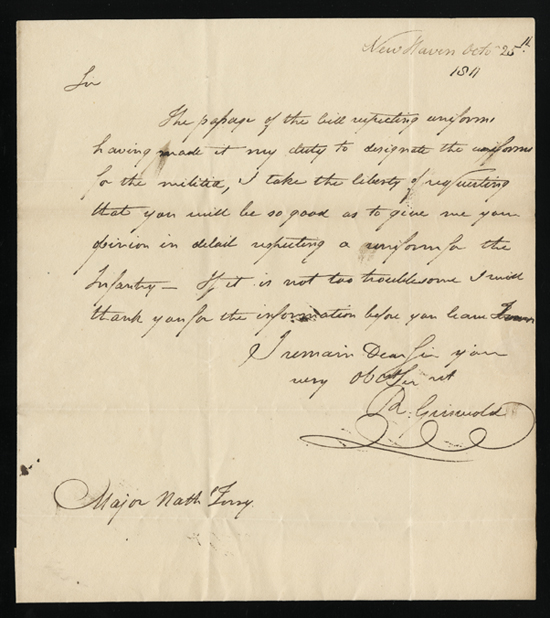 New Haven Octr 25th
1811
Sir
The passage of the bill respecting uniforms
having made it my duty to designate the uniforms
for the militia, I take the liberty of requesting
that you will be so good as to give me your
opinion in detail respecting a uniform for the
Infantry — If it is not too troublesome I will
thank you for the information before you leave Town
I remain Dear Sir your
very Ob Servt
R. Griswold
Major Nathl Terry